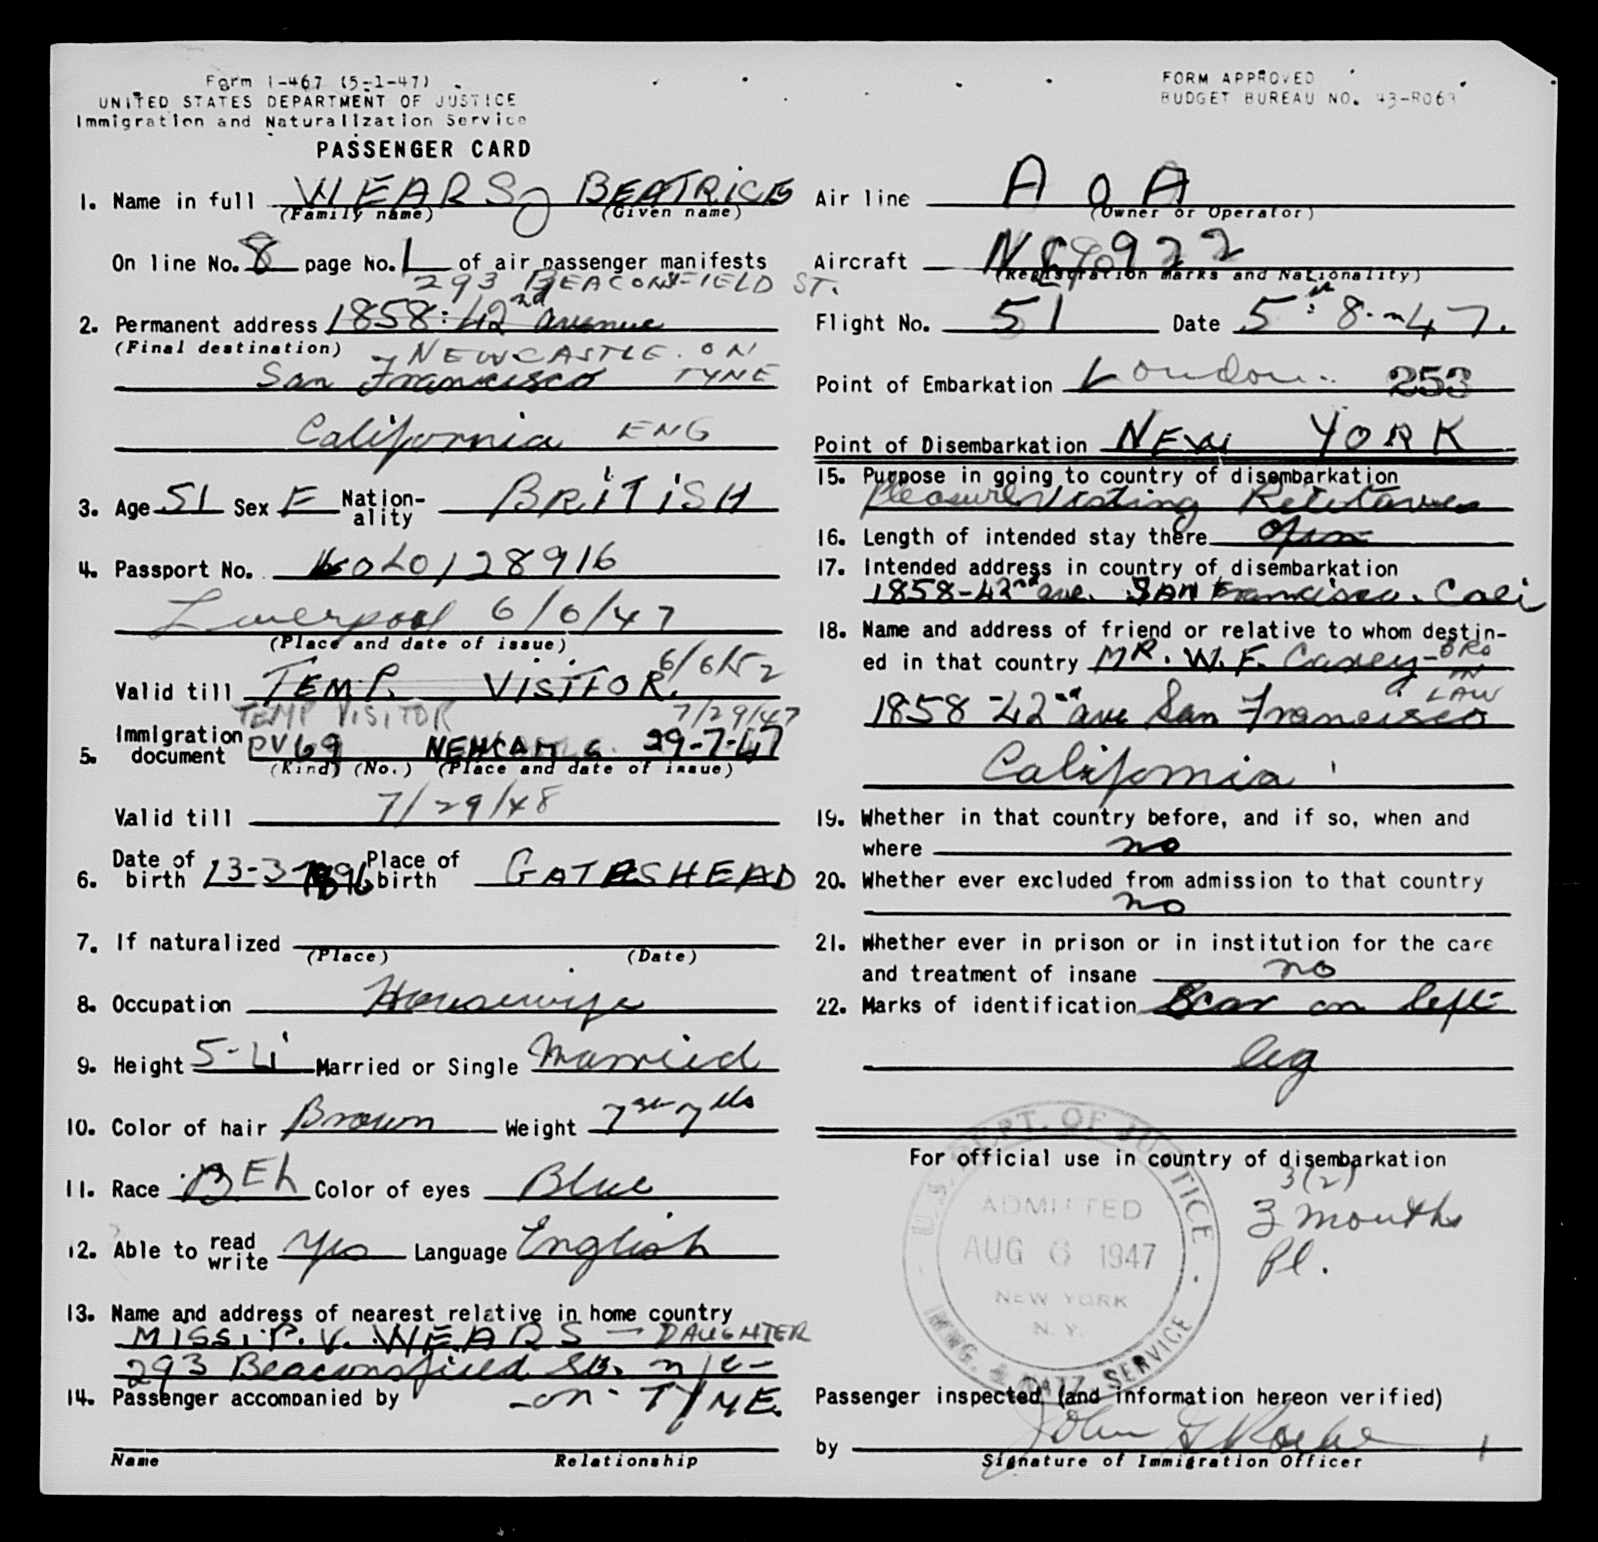 Form I-467 (5-1-47)
UNITED STATES DEPARTMENT OF JUSTICE
Immigration and Naturalization Service
PASSENGER CARD
FORM APPROVED
BUDGET BUREAU NO. 43-R069
1. Name in full WEARS, BEATRICE
(Family name) (Given name)
On line No. 8 page No. 1 of air passenger manifests
293 BEACONSFIELD ST.
2. Permanent address 1858: 42nd avenue
(Final destination) NEWCASTLE. ON
San Francisco TYNE
California ENG
3. Age 51 Sex F Nation-ality BRITISH
4. Passport No. LO/128916
Liverpool 6/6/47
(Place and date of issue)
6/6/52
Valid till TEMP. VISITOR.
TEMP VISITOR 7/29/47
5. Immigration document PV69 NEWCA 29-7-47
(Kind) (No.) (Place and date of issue)
Valid till 7/29/48
6. Date of birth 13-3-1896 Place of birth GATESHEAD
7. If naturalized
(Place) (Date)
8. Occupation Housewife
9. Height 5-4 Married or Single Married
10. Color of hair Brown Weight 7st 7lbs
11. Race Color of eyes Blue
12. Able to read write Yes Language English
13. Name and address of nearest relative in home country
MISS. P. V. WEARS - DAUGHTER
293 Beaconsfield St. n/c-
14. Passenger accompanied by -on- TYNE.
Name Relationship
Air line A O A
(Owner or Operator)
Aircraft 922
(Registration marks and Nationality)
Flight No. 51 Date 5th 8-47.
Point of Embarkation London. 253
Point of Disembarkation NEW YORK
15. Purpose in going to country of disembarkation
pleasure Visting Relitaves
16. Length of intended stay there open
17. Intended address in country of disembarkation
1858-42nd ave. SAN Francisco. Cali
18. Name and address of friend or relative to whom destin-
ed in that country MR. W. F. Casey - BRO IN LAW
1858 - 42nd ave San Francisco
California
19. Whether in that country before, and if so, when and
where no
20. Whether ever excluded from admission to that country
no
21. Whether ever in prison or in institution for the care
and treatment of insane no
22. Marks of identification Scar on left
leg
For official use in country of disembarkation
3(2)
3 months
Pl.
U.S. DEPT. OF JUSTICE
ADMITTED
AUG 6 1947
NEW YORK
N. Y.
IMMG. & NATZ. SERVICE
Passenger inspected (and information hereon verified)
by John
Signature of Immigration Officer